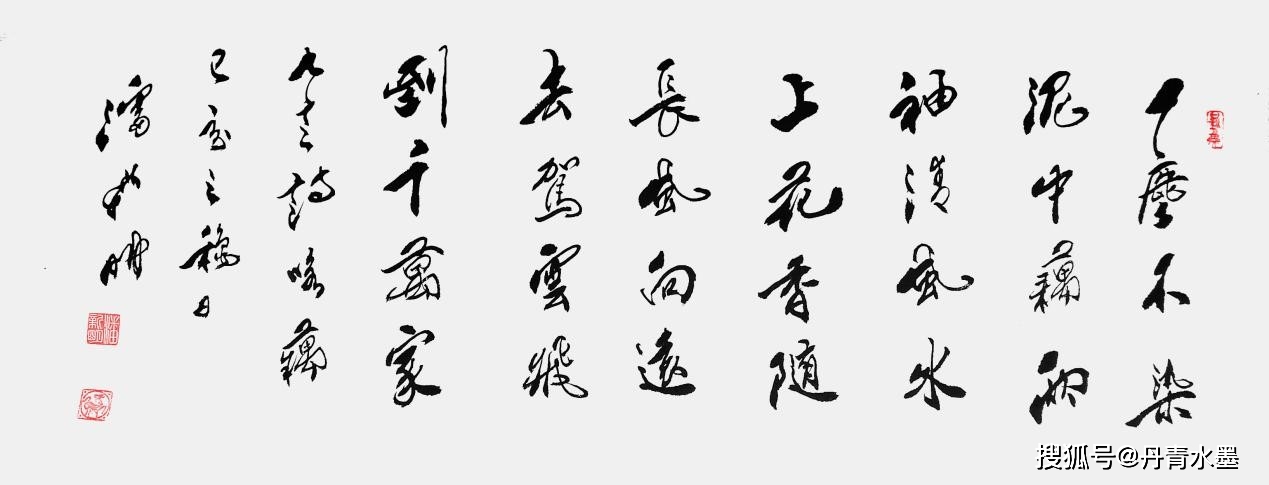 一塵不染
泥中藕兩
袖清風水
上花香隨
長風向遠
去駕雲飛
到千萬家
詩咏藕
己亥之穐日
潘明
搜狐号@丹青水墨